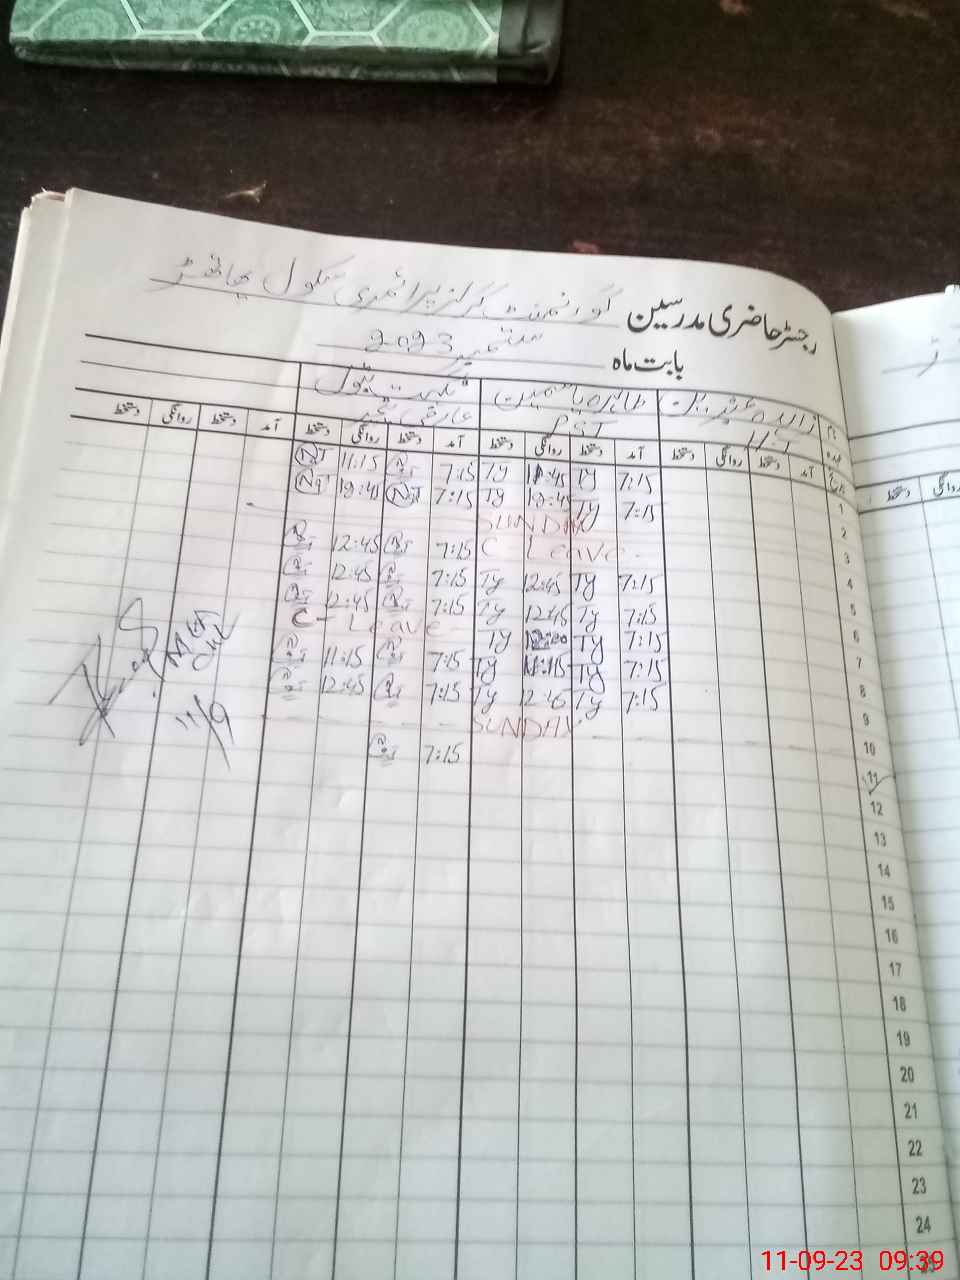 رجسٹر حاضری مدرسین گورنمنٹ گرلز پرائمری سکول
بابت ماہ ستمبر 2023
نام زاہدہ طاہرہ یاسمین بتول
عہدہ PST عارضی ٹیچر
تاریخ آمد دستخط روانگی دستخط آمد دستخط روانگی دستخط آمد دستخط روانگی دستخط آمد دستخط روانگی دستخط
1 7:15 Ty 11:45 Ty 7:15 11:15 NJ
2 7:15 Ty 12:45 Ty 7:15 NJ 12:45
3 SUNDAY
4 C - Leave - 7:15 12:45
5 7:15 Ty 12:45 Ty 7:15 12:45
6 7:15 Ty 12:45 Ty 7:15 12:45
7 7:15 Ty Ty C - Leave -
8 7:15 Ty 11:15 Ty 7:15 11:15
9 7:15 Ty 12:45 Ty 7:15 12:45
10 SUNDAY
11 7:15
12
13
14
15
16
17
18
19
20
21
22
23
24
MEA
11/9
دستخط
روانگی
11-09-23 09:39